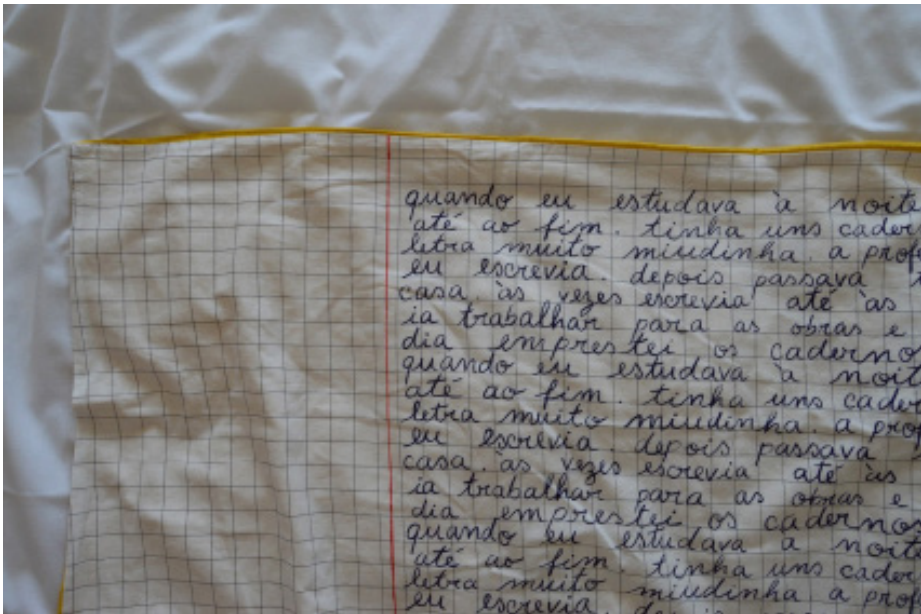 quando eu estudava à noite
até ao fim. tinha uns cader
letra muito miudinha. a prof
eu escrevia. depois passava
casa. às vezes escrevia até às
ia trabalhar para as obras e
dia emprestei os caderno
quando eu estudava à noit
até ao fim. tinha uns cader
letra muito miudinha. a prof
eu escrevia. depois passava
casa. às vezes escrevia até às
ia trabalhar para as obras e
dia emprestei os caderno
quando eu estudava à noit
até ao fim. tinha uns cader
letra muito miudinha a prof
eu escrevia.